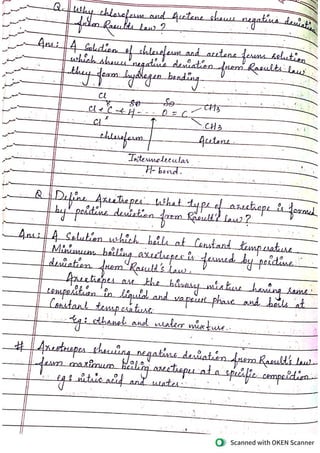 Q. Why chloroform and Acetone shows negative deviation
from Raoults law?
Ans: A Solution of chloroform and acetone form solution
which shows negative deviation from Raoults law
they form hydrogen bonding.
Cl
Cl - C - H --- O = C
CH3
Cl
CH3
chloroform
Acetone
Intermolecular
H-bond.
Q Define Azeotropes. What type of azeotrope is formed
by positive deviation from Raoult's law?
Ans: A Solution which boils at Constant temperature
Minimum boiling azeotropes is formed by positive
deviation from Raoult's law.
Azeotropes are the binary mixture having same
composition in liquid and vapour phase and boils at
Constant temperature
Eg: ethanol and water mixture.
# Azeotropes showing negative deviation from Raoult's law
form maximum boiling azeotropes at a specific composition.
eg: nitric acid and water.
Scanned with OKEN Scanner